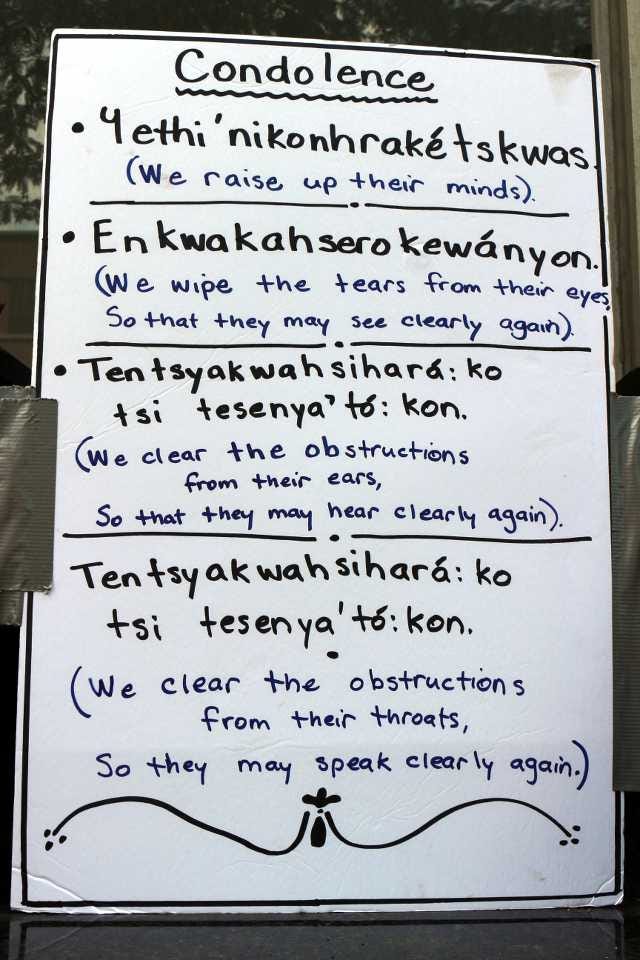 Condolence
• Yethi'nikonhrakétskwas.
(We raise up their minds).
• Enkwakahserokewányon.
(We wipe the tears from their eyes,
So that they may see clearly again).
• Tentsyakwahsihará:ko
tsi tesenya'tó:kon.
(We clear the obstructions
from their ears,
So that they may hear clearly again).
Tentsyakwahsihará:ko
tsi tesenya'tó:kon.
(We clear the obstructions
from their throats,
So they may speak clearly again.)